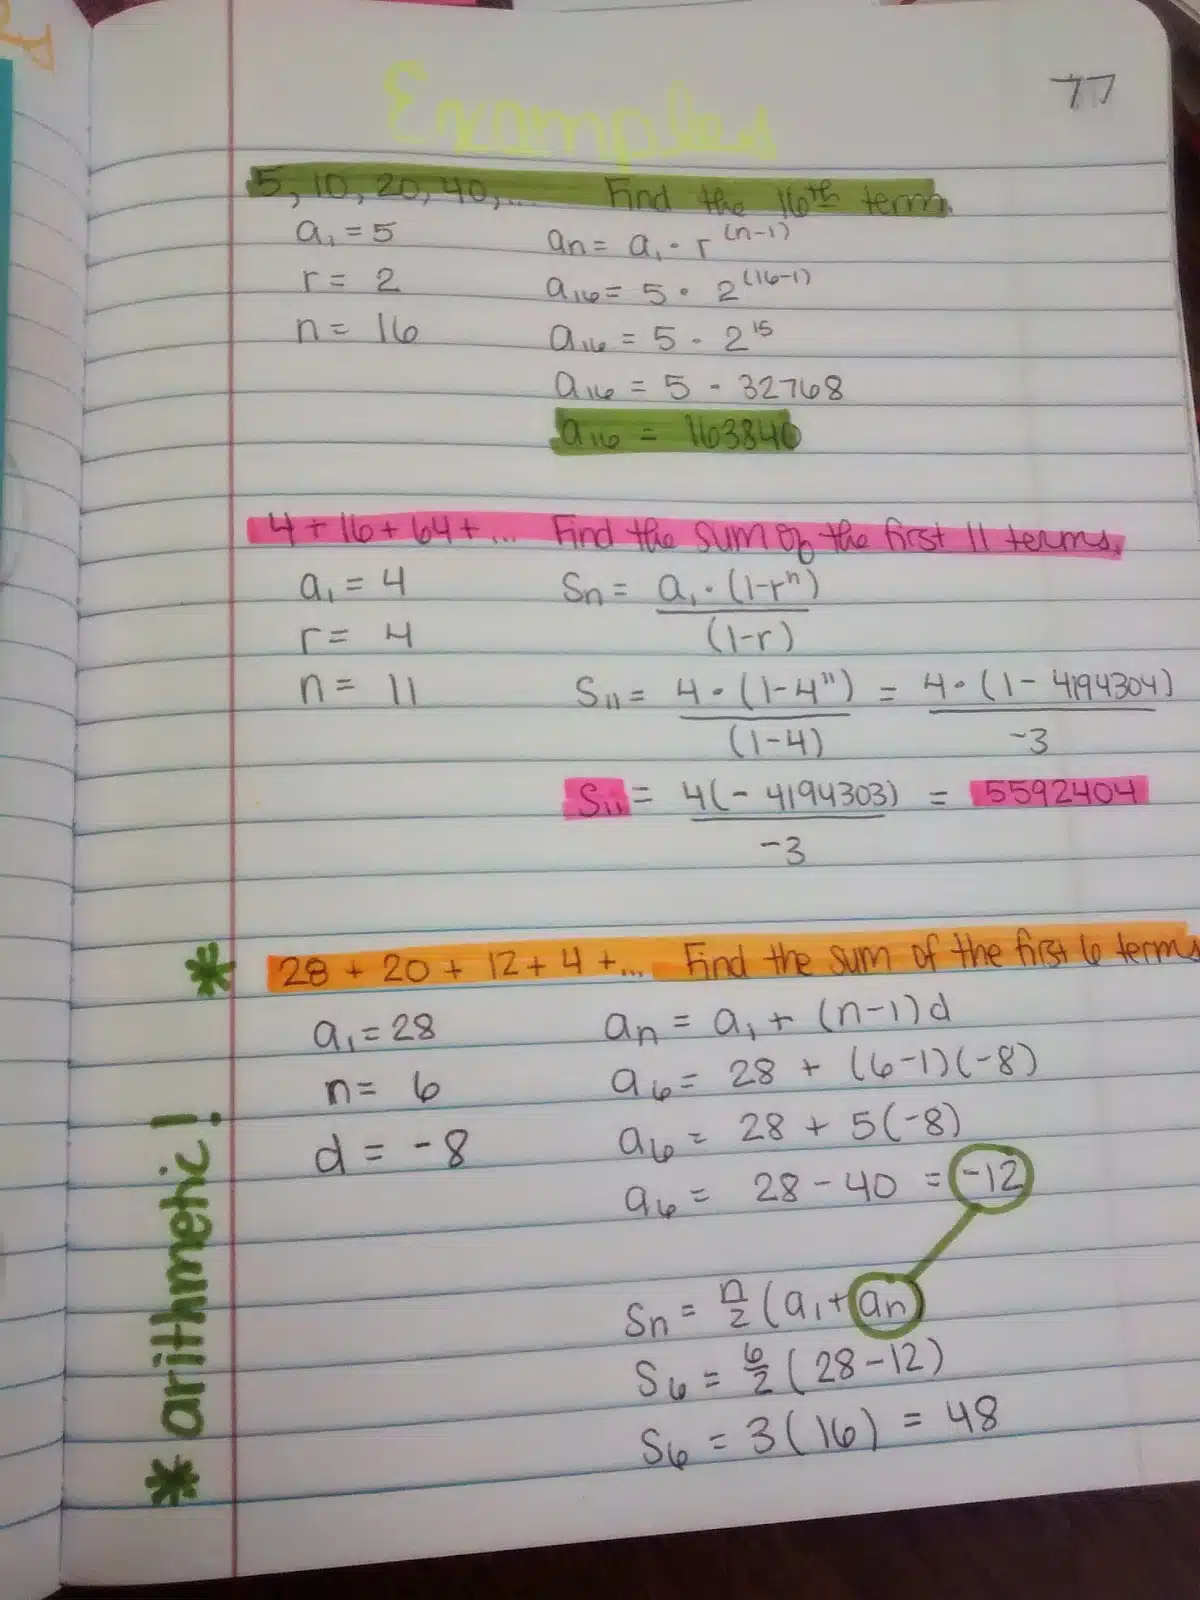 77
Examples
5, 10, 20, 40, ... Find the 16th term.
a₁ = 5    aₙ = a₁ · r⁽ⁿ⁻¹⁾
r = 2    a₁₆ = 5 · 2⁽¹⁶⁻¹⁾
n = 16    a₁₆ = 5 · 2¹⁵
a₁₆ = 5 · 32768
a₁₆ = 163840
4 + 16 + 64 + ... Find the sum of the first 11 terms.
a₁ = 4    Sₙ = a₁ · (1-rⁿ)
r = 4    (1-r)
n = 11    S₁₁ = 4 · (1-4¹¹) = 4 · (1 - 4194304)
(1-4)    -3
S₁₁ = 4(-4194303) = 5592404
-3
* 28 + 20 + 12 + 4 + ... Find the sum of the first 6 terms
a₁ = 28    aₙ = a₁ + (n-1)d
n = 6    a₆ = 28 + (6-1)(-8)
d = -8    a₆ = 28 + 5(-8)
a₆ = 28 - 40 = -12
Sₙ = n/2 (a₁ + aₙ)
S₆ = 6/2 (28-12)
S₆ = 3(16) = 48
* arithmetic!